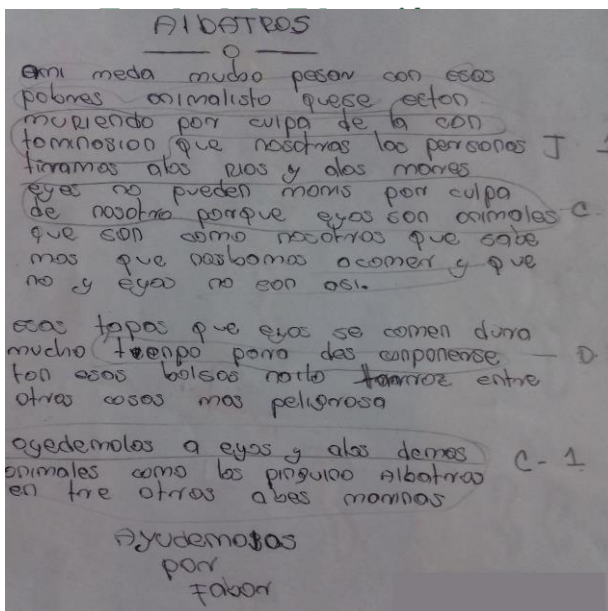 AlBATROS
O
ami meda mucho pesar con esos
pobres animalisto quese ecton
muriendo por culpa de la con
tominosion que nosotros las personas J
tiramos alos Rios y alos mares
eyes no pueden morris por culpa
de nosotro porque eyos son animales C
que son como nosotros que sabe
mos que nasbamos acomer y que
no y eyos no son asi.
esas tapas que eyos se comen dura
mucho tienpo para des conponerse - D
ton esas bolsas entre
otras cosas mas peligrosa
ayedemolos a eyos y alos demas
animales como los pinguino Albatros
en tre otros abes marinas
C - 1
Ayudemoslos
por
Fabor